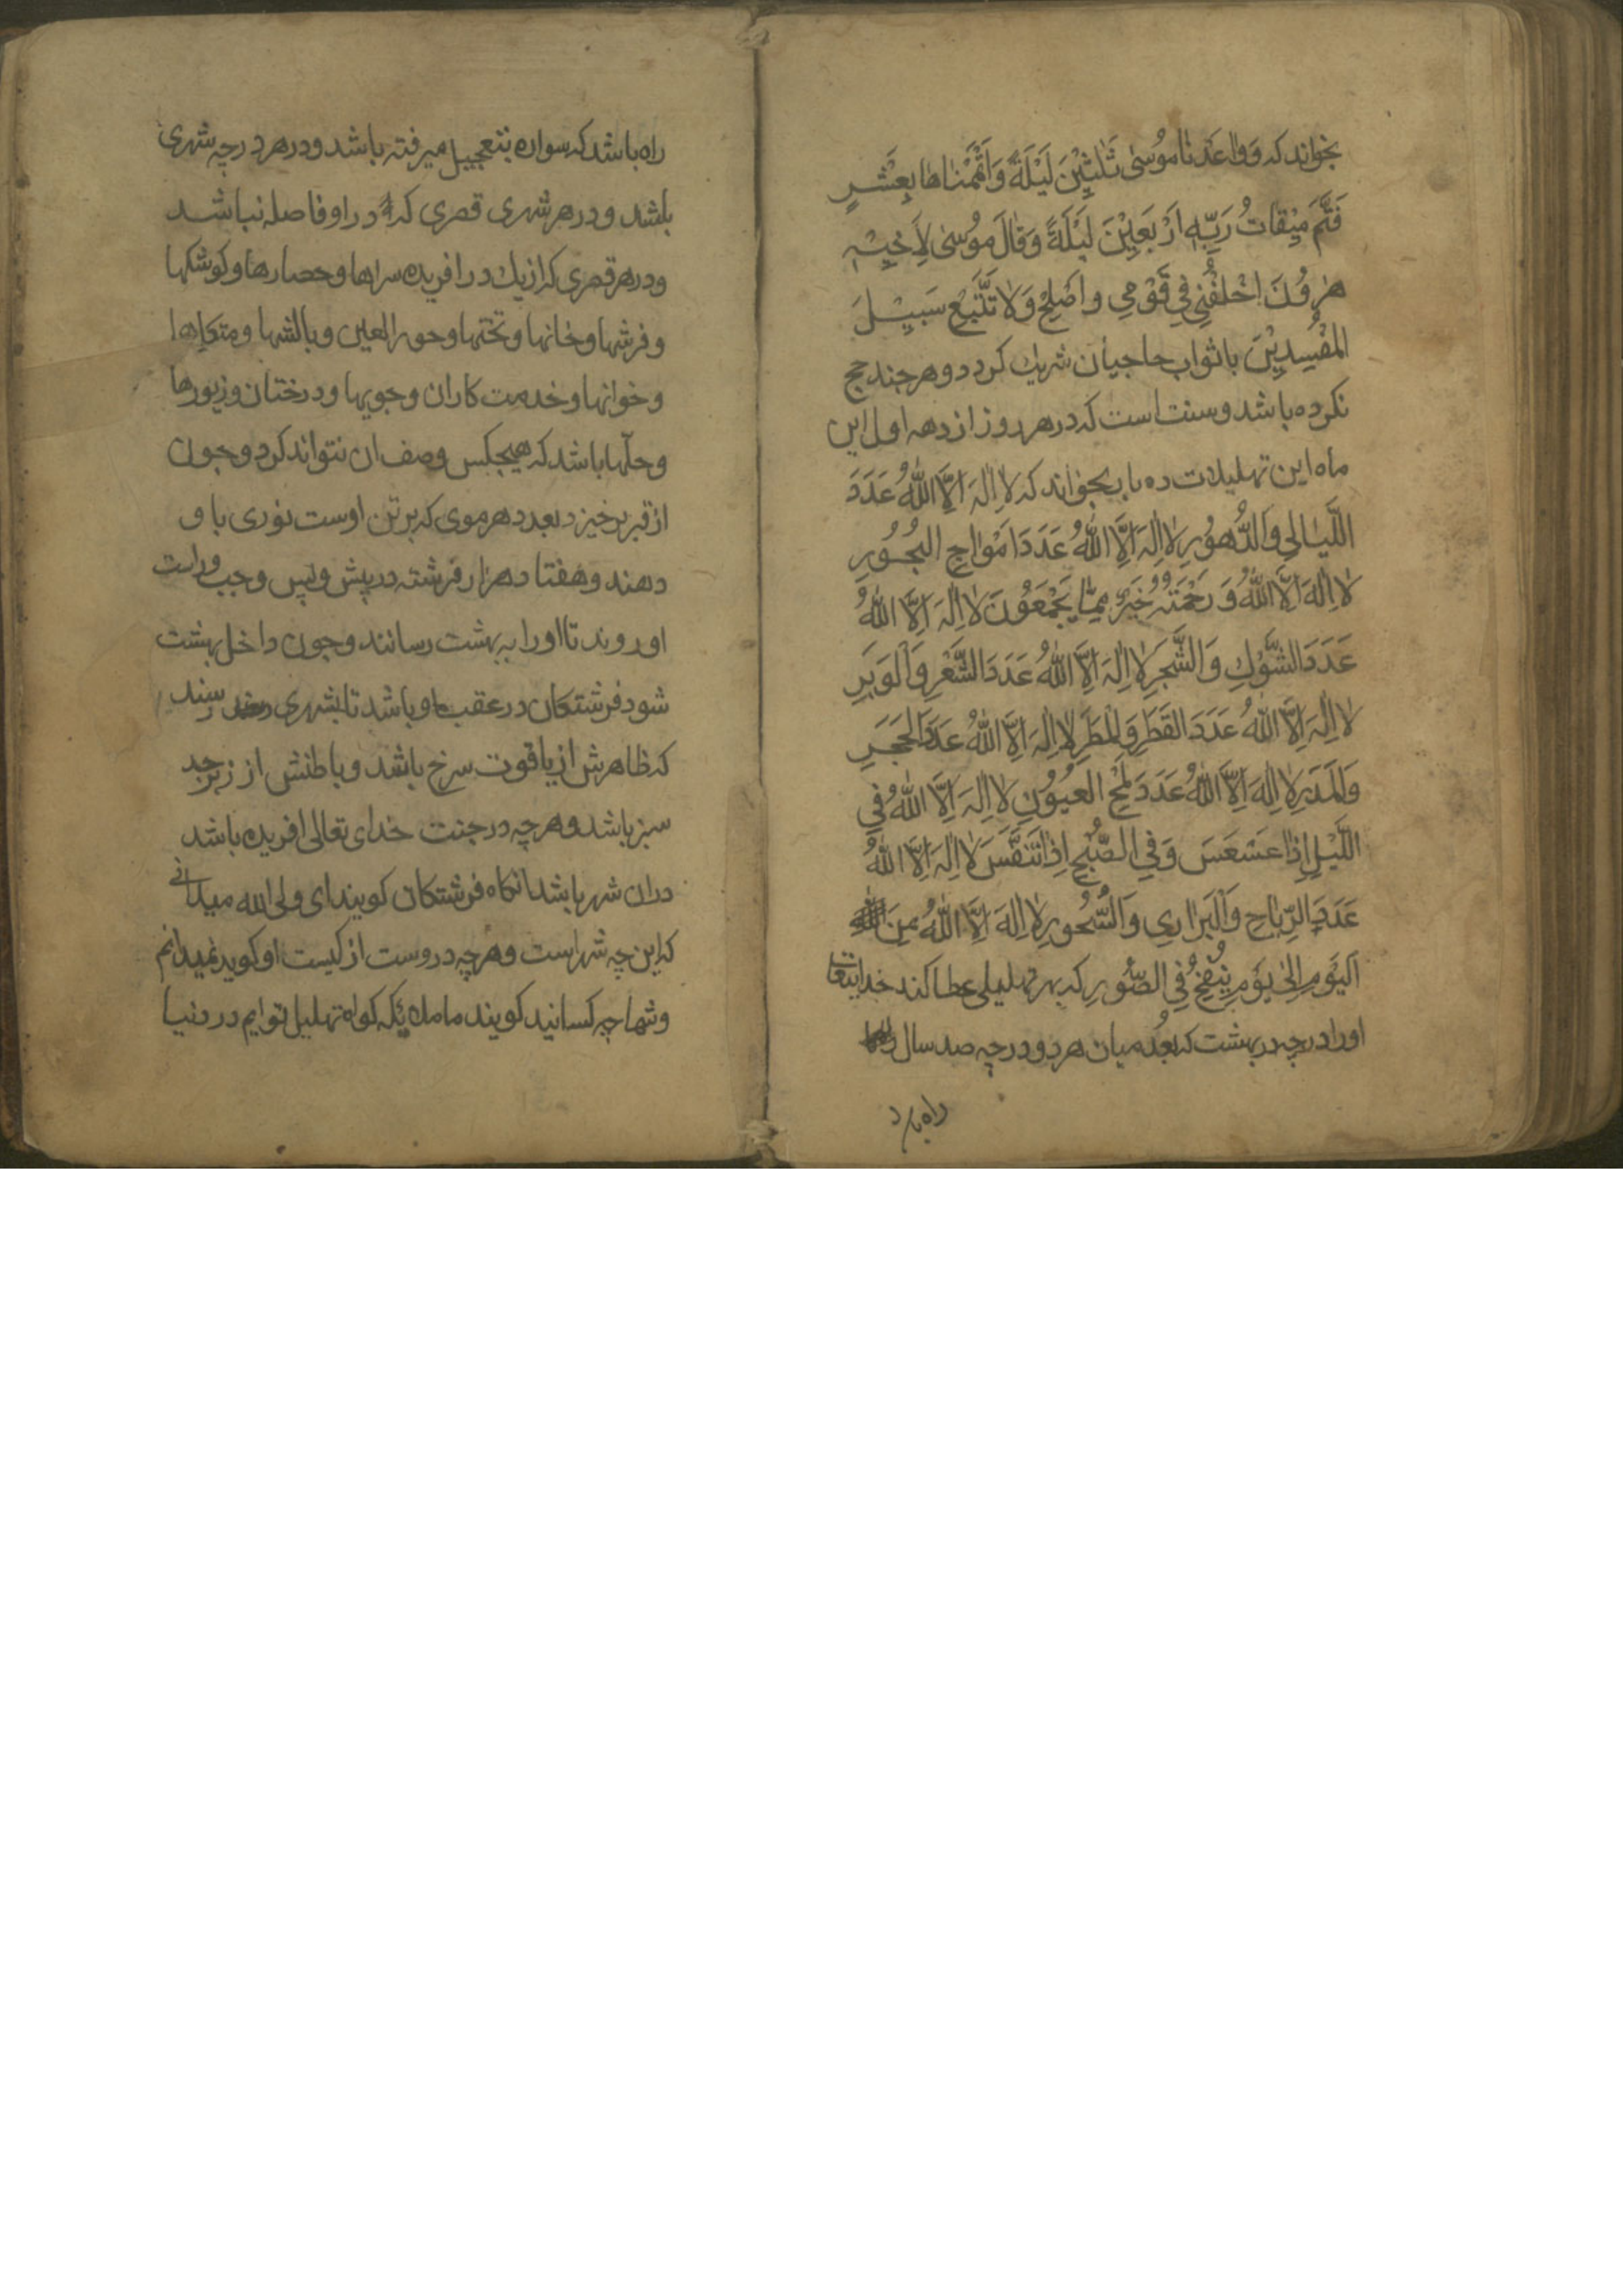 بخواند که وَ وٰاعَدْنٰا مُوُسىٰ ثَلٰثِيْنَ لَيْلَةً وَاَتْمَمْنٰاهٰا بِعَشْرٍ
فَتَمَّ مِيْقٰاتُ رَبِّهٖ اَرْبَعِيْنَ لَيْلَةً وَقٰالَ مُوُسىٰ لِاَخِيْهِ
هٰرُوُنَ اخْلُفْنِي فِي قَوْمِي واَصْلِحْ وَلاٰ تَتَّبِعْ سَبِيْلَ
المُفْسِدِيْنَ باثواب حاجيان شريك كردد و هر جند حج
نكرده باشد و سنت است كه در هر روز از دهه اول اين
ماه اين تهليلات ده بار بخواند كه لاٰ اِلٰهَ اِلاَّ اللهُ عَدَدَ
اللَّيٰالِي وَالدُّهوُرِ لاٰ اِلٰهَ اِلاَّ اللهُ عَدَدَ اَمْوٰاجِ البُحُوُرِ
لاٰ اِلٰهَ اِلاَّ اللهُ وَ رَحْمَتُهُ خَيْرٌ مِمّٰا يَجْمَعُوُنَ لاٰ اِلٰهَ اِلاَّ اللهُ
عَدَدَ الشَّوْكِ وَالشَّجَرِ لاٰ اِلٰهَ اِلاَّ اللهُ عَدَدَ الشَّعْرِ وَالْوَبَرِ
لاٰ اِلٰهَ اِلاَّ اللهُ عَدَدَ القَطَرِ وَالْمَطَرِ لاٰ اِلٰهَ اِلاَّ اللهُ عَدَدَ الحَجَرِ
وَالْمَدَرِ لاٰ اِلٰهَ اِلاَّ اللهُ عَدَدَ لَمْحِ العُيُوُنِ لاٰ اِلٰهَ اِلاَّ اللهُ فِي
اللَّيْلِ اِذٰا عَسْعَسَ وَفِي الصُّبْحِ اِذٰا تَنَفَّسَ لاٰ اِلٰهَ اِلاَّ اللهُ
عَدَدَ الرِّيٰاحِ وَالْبَرٰارِي وَالصُّخُورِ لاٰ اِلٰهَ اِلاَّ اللهُ مِنَ
اليَوْمِ اِلىٰ يَوْمِ يُنْفَخُ فِي الصُّوُرِ كه بهر تهليلى عطا كند خدايتعا
اورا درجه در بهشت كه بُعد ميان هر دو درجه صد سال
راه بارد
راه باشد كه سواره بتعجيل ميرفته باشد و در هر درجه شهرى
باشد و در هر شهرى قصرى كه در او فاصله نباشد
و در هر قصرى كه از يك در افريده سراها و حصارها و كوشكها
و فرشها و خانها و تختها و حور العين و بالشها و متكاها
و خوانها و خدمت كاران و جويها و درختان و زيورها
و حلها باشد كه هيچكس وصف ان نتواند كرد و جون
از قبر برخيزد بعدد هر موى كه بر تن اوست نورى باو
دهند و هفتاد هزار فرشته در پيش و پس و جب و راست
او روند تا او را به بهشت رسانند و جون داخل بهشت
شود فرشتكان در عقب او باشد تا بشهرى رسند
كه ظاهرش از ياقوت سرخ باشد و باطنش از زبرجد
سبز باشد و هر چه در جنت خداى تعالى افريده باشد
دران شهر باشد انكاه فرشتكان كويند اى ولى الله ميدانى
كه اين چه شهر است و هر چه دروست از كيست او كويد نميدانم
و شما چه كسانيد كويند ما ملئكه كواه تهليل توايم در دنيا